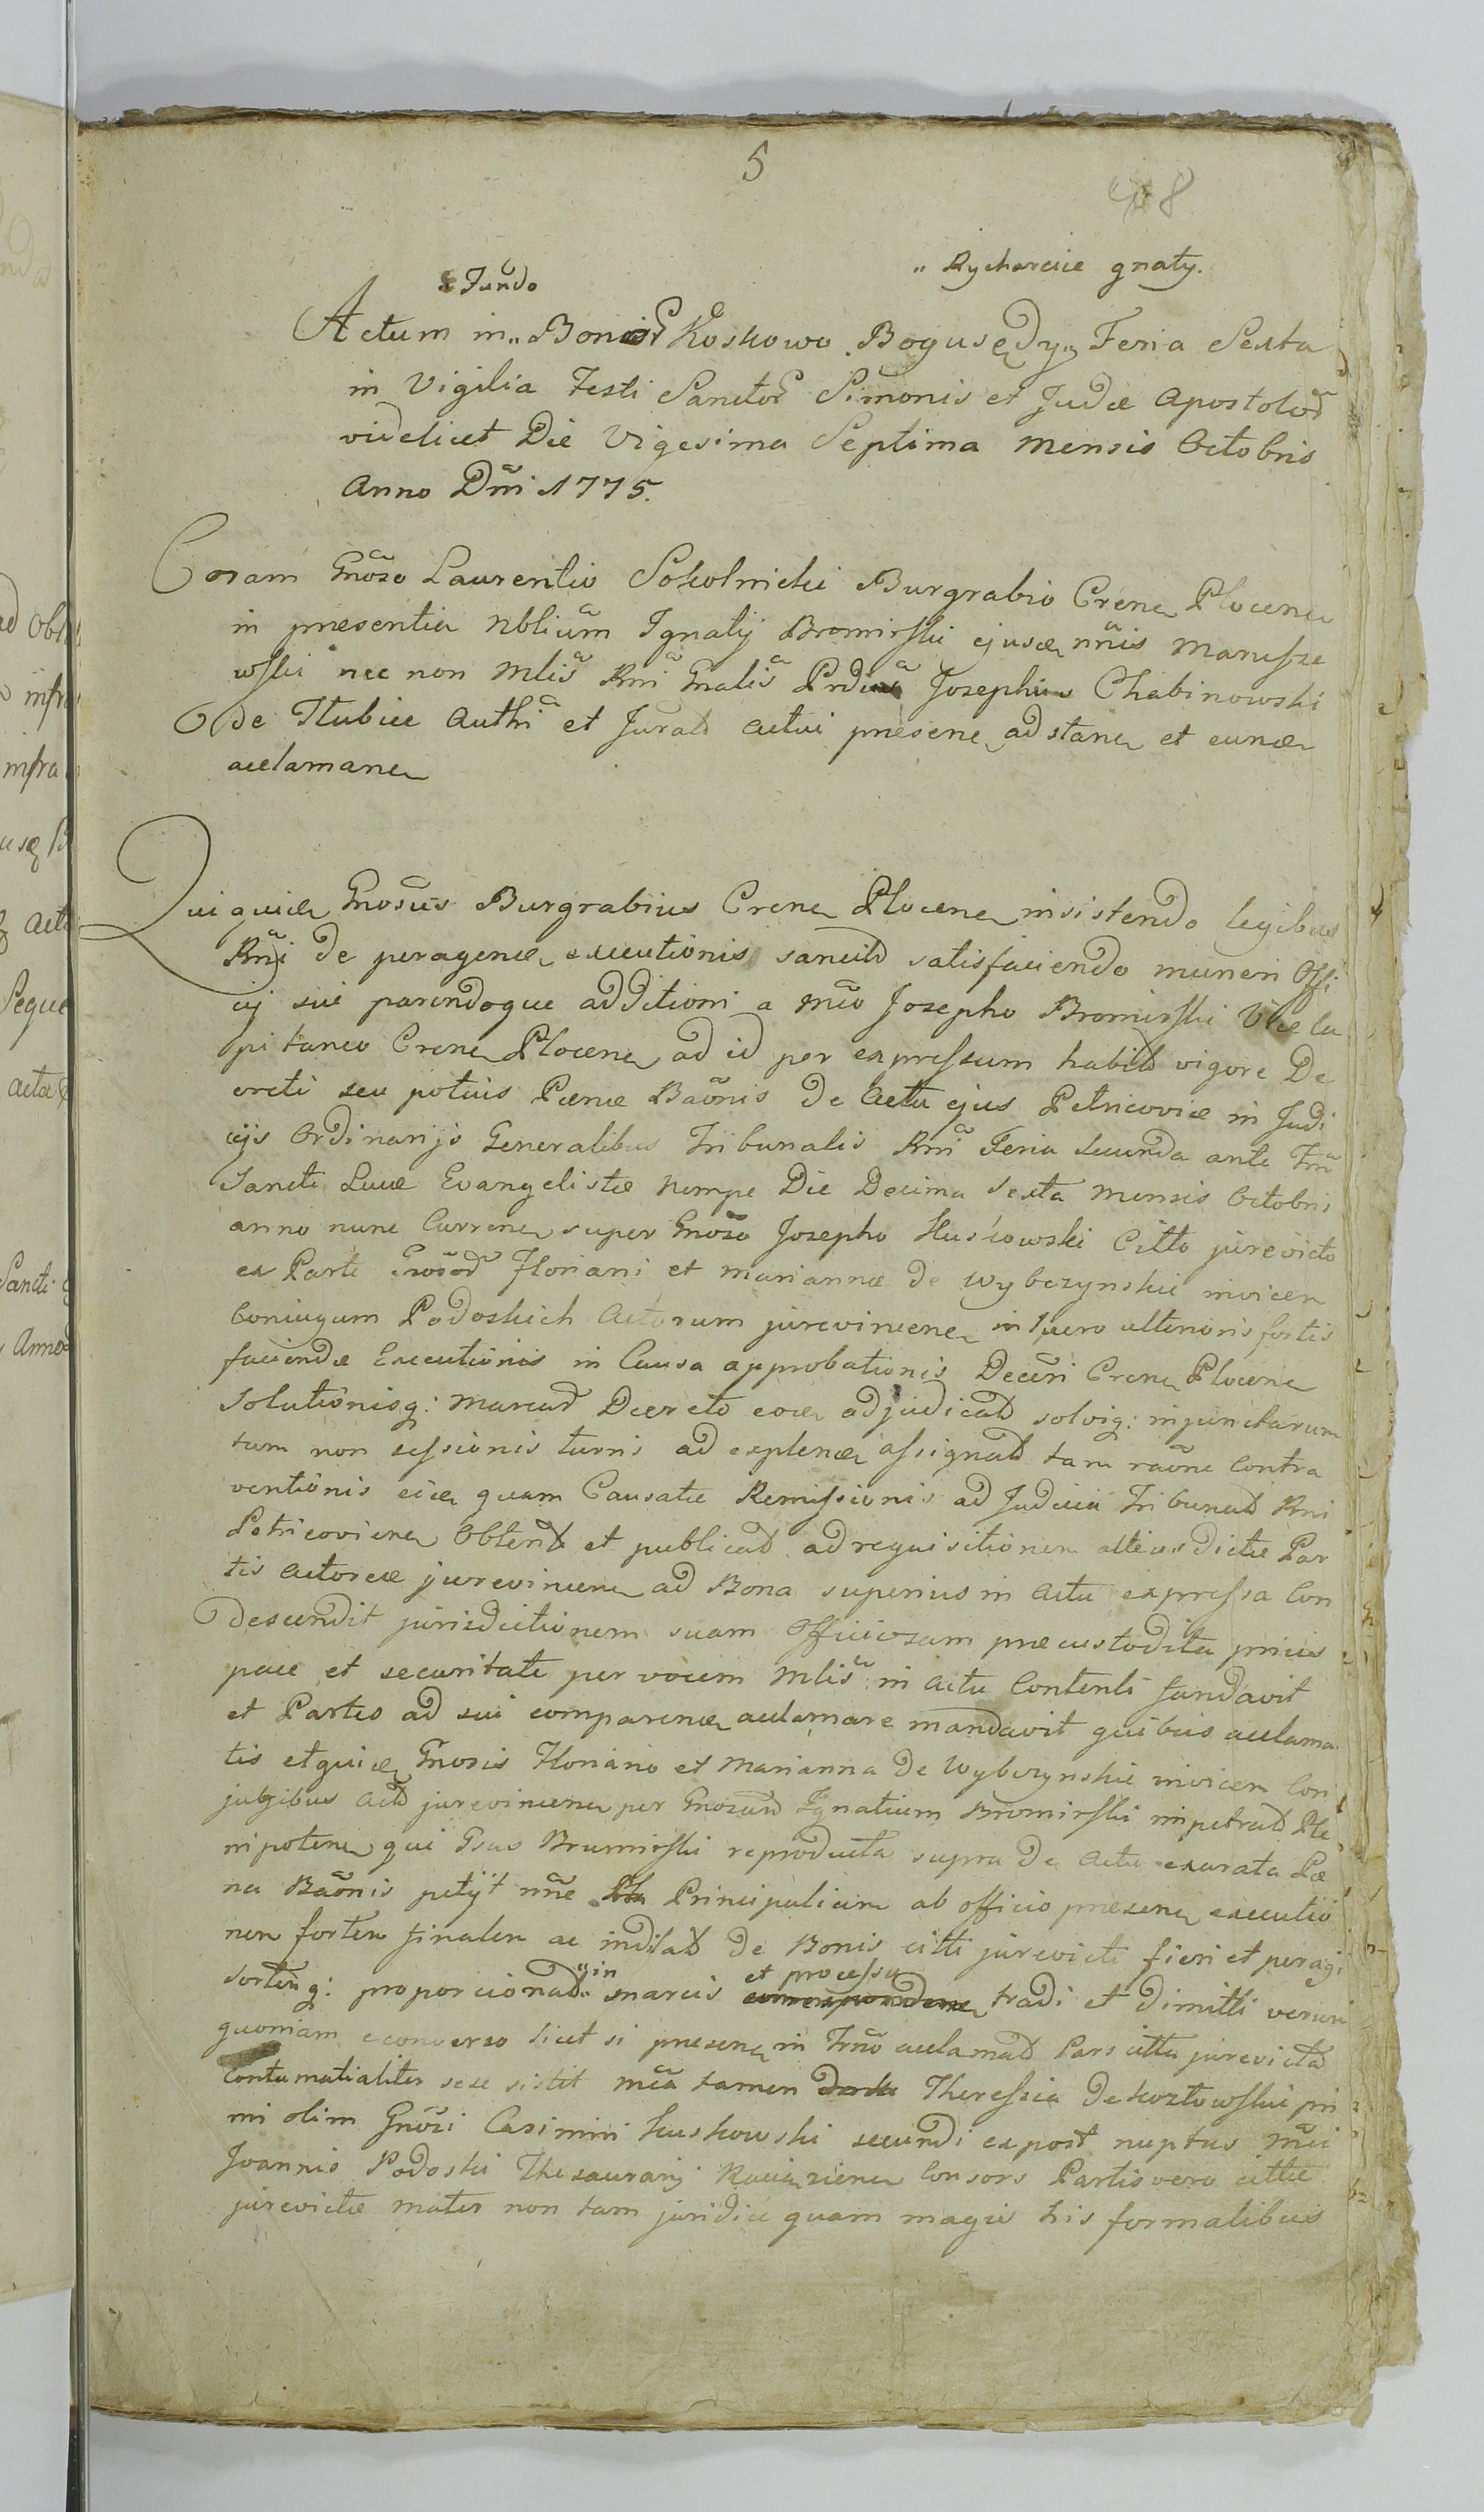 5
408
„ Rycharcice gnaty.
Fundo
Actum in „ Bonis Koskowo Bogusędy „ Feria Sexta
in Vigilia Festi Sanctor Simonis et Judæ Apostolor
videlicet Die Vigesima Septima Mensis Octobris
Anno Dni 1775.
Coram Gnoso Laurentio Sokolnicki Burgrabio Crenẽ Plocenẽ
in præsentia Nblium Ignatij Bromirski ejusæ nnis Marusze
wski nec non Mlis Rni Gnalis Josephi Chabinowski
de Słubice Authi et Jurat actui præsenẽ adstanẽ et eunæ
acclamanẽ
Quiquiæ Gnosus Burgrabius Crenẽ Plocenẽ insistendo legibus
Rni de peragenæ executionis sancitt satisfaciendo muneri Offi
cij sui parendoque additioni a Mco Josepho Bromirski Vice Ca
pitaneo Crenẽ Plocenẽ ad id per expressum habitt vigore De
creti seu potius Pœnæ Baõnis de Actu ejus Petricoviæ in Judi
cijs Ordinarijs Generalibus Tribunalis Rni Feria Secunda ante Fm
Sancti Lucæ Evangelistæ nempe Die Decima Sexta Mensis Octobris
anno nunc Currenẽ super Gnoso Josepho Kuskowski Citto jurevicto
ex Parte Gnosor Floriani et Mariannæ de Wybczynskie invicem
Coniugum Podoskich Actorum jurevincenẽ in vero ulterioris fortis
faciendæ Executionis in Causa approbationis Decri Crenẽ Plocenẽ
Solutionisq: Marcar Decreto eoæ adjudicatt solviq: injunctarum
tum non sessionis turris ad explenæ assignatt tam raõne Contra
ventionis eiæ quam Causatæ Remissionis ad Judicia Tribunat Rni
Petricovienẽ Obtent et publicatt ad requisitionem alteius dictæ Par
tis Actoreæ jurevincenẽ ad Bona superius in Actu expressa Con
descendit jurisdictionem suam Officiosam præcustodita prius
pace et securitate per vocem Mlis in Actu Contenti fundavit
et Partes ad sui comparenæ acclamare mandavit quibus acclama
tis etquiæ Gnosis Floriano et Marianna de Wybczynskie invicem Con
jugibus Actt jurevincenẽ per Gnosum Ignatium Bromirski impetratt Ple
nipotenẽ qui Gsus Bromirski reproducta supra de Actu exarata Pœ
na Baõnis petijt nne Principalium ab officio præsenẽ executio
nem fortem finalem ac inditatt de Bonis citti jurevicti fieri et peragi
Sortemq: proporcionatt „in marcis et processu correspondenẽ tradi et dimitti verum
quoniam econverso licet si præsenẽ in Trno acclamatt Pars citta jurevicta
Contumatialiter sese sistit Mca tamen Theressia de Kozłowskie pri
mi olim Gnosi Casimiri Kuskowski secundi expost nuptus Mci
Joannis Podoski Thesaurarij Racianzenẽ Consors Partis vero cittæ
jurevictæ mater non tam juridice quam magis his formalibus